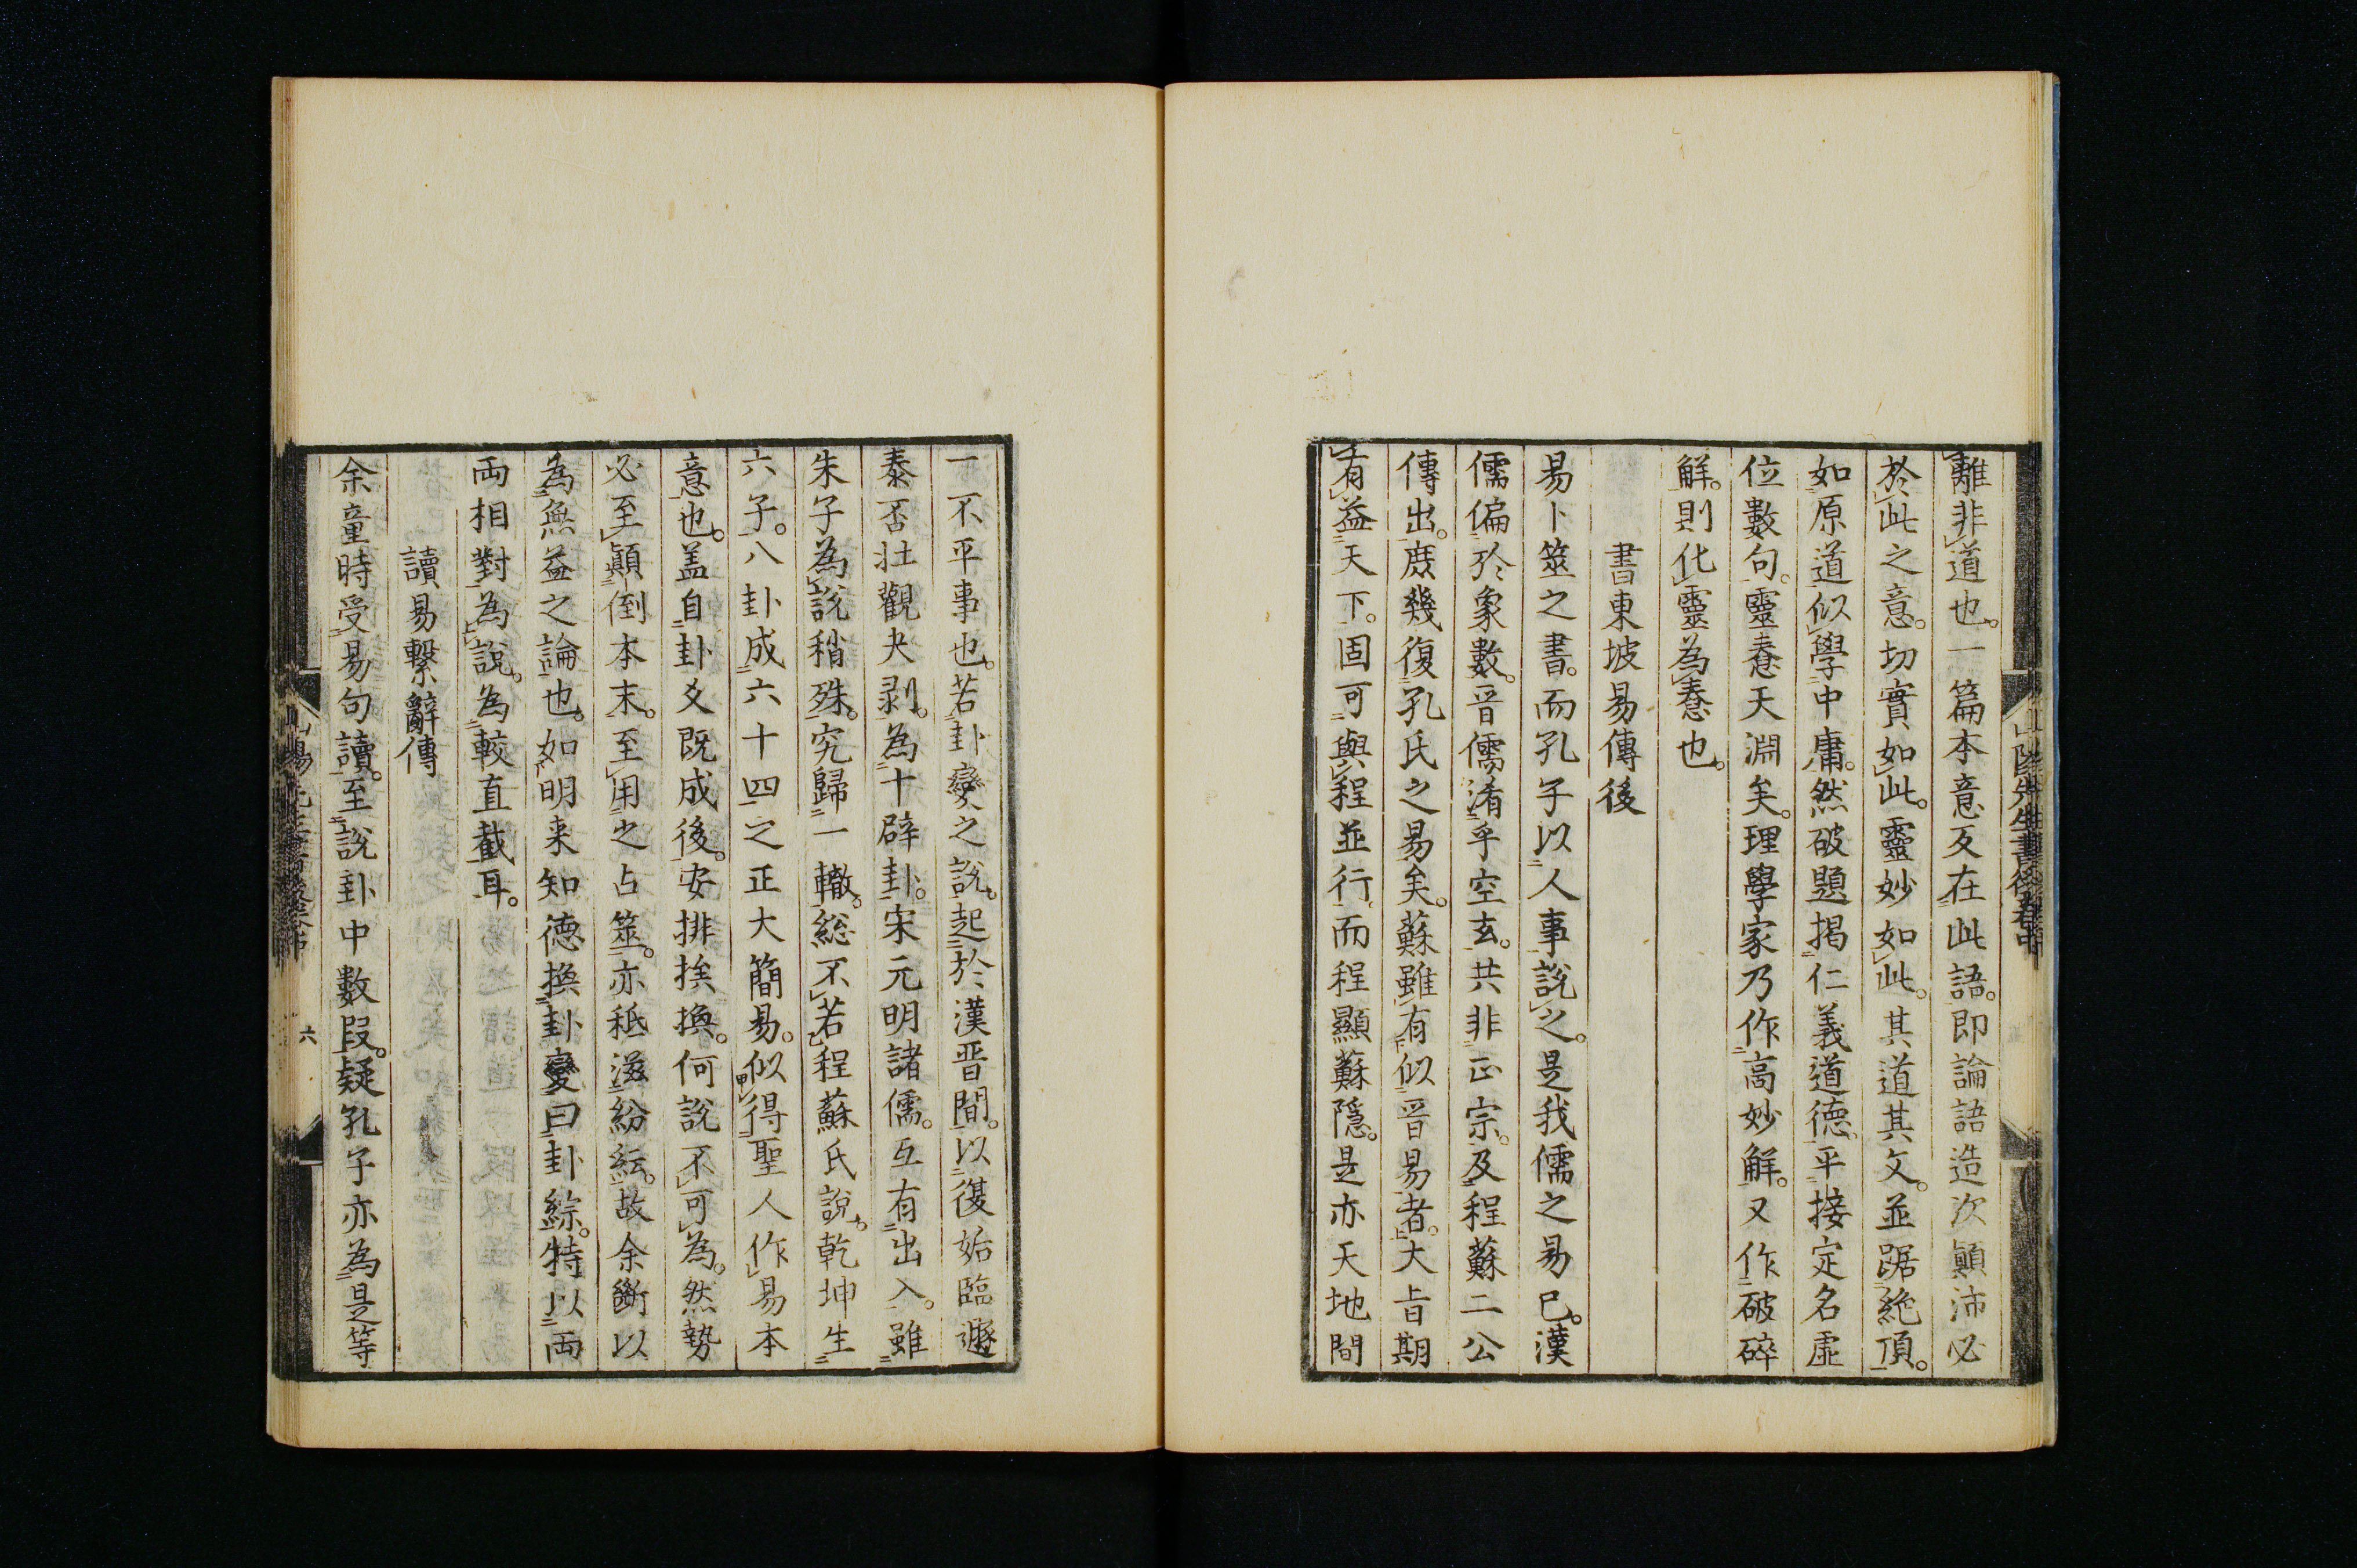 山陽先生書後卷中
離非道也。一篇本意叐在此語。即論語造次顚沛必
於此之意。切實如此。靈妙如此。其道其文。並踞絶頂。
如原道似學中庸。然破題揭仁義道德。平接定名虛
位數句。靈蠢天淵矣。理學家乃作高妙解。又作破碎
解。則化靈為蠢也。
書東坡易傳後
易卜筮之書。而孔子以人事說之。是我儒之易已。漢
儒偏於象數。晉儒淆乎空玄。共非正宗。及程蘇二公
傳出。庶幾復孔氏之易矣。蘇雖有似晉易者。大旨期
有益天下。固可與程並行。而程顯蘇隱。是亦天地間
一不平事也。若卦變之說。起於漢晋間。以復姤臨遯
泰否壯觀夬剥。為十辟卦。宋元明諸儒。互有出入。雖
朱子為說稍殊。究歸一轍。総不若程蘇氏說。乾坤生
六子。八卦成六十四之正大簡易。似得聖人作易本
意也。盖自卦爻既成後。安排挨換。何說不可為。然勢
必至顚倒本末。至用之占筮。亦秪滋紛紜。故余斷以
為無益之論也。如明来知德換卦變曰卦綜。特以両
両相對為說。為較直截耳。
讀易繫辭傳
余童時受易句讀。至說卦中數段。疑孔子亦為是等
六